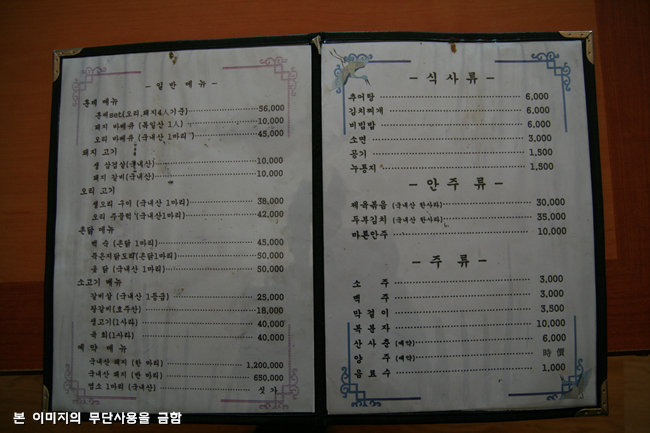 - 일 반 메 뉴 -
훈제 메뉴
훈제set(오리,돼지4人기준) 56,000
돼지 바베큐 (목일산 1人) 10,000
오리 바베큐 (국내산 1마리) 45,000
돼지 고기
생 삼겹살(국내산) 10,000
돼지 갈비(국내산) 10,000
오리 고기
생오리 구이 (국내산 1마리) 38,000
오리 주물럭 (국내산1마리) 42,000
촌닭 메뉴
백 숙 (촌닭 1마리) 45,000
묵은지닭도리(촌닭1마리) 50,000
옻 닭 (국내산 1마리) 50,000
소고기 메뉴
갈비살 (국내산 1등급) 25,000
왕갈비(호주산) 18,000
생고기(1사라) 40,000
육 회(1사라) 40,000
예 약 메 뉴
국내산 돼지 (한 마리) 1,200,000
국내산 돼지 (반 마리) 650,000
염소 1마리 (국내산) 싯 가
- 식 사 류 -
추어탕 6,000
김치찌개 6,000
비빔밥 6,000
소면 3,000
공기 1,500
누룽지 1,500
- 안 주 류 -
제육볶음 (국내산 한사라) 30,000
두부김치 (국내산 한사라) 35,000
마른안주 10,000
- 주 류 -
소 주 3,000
맥 주 3,000
막걸이 3,500
복분자 10,000
산사춘 (예약) 6,000
양 주 (예약) 時 價
음료수 1,000
본 이미지의 무단사용을 금함